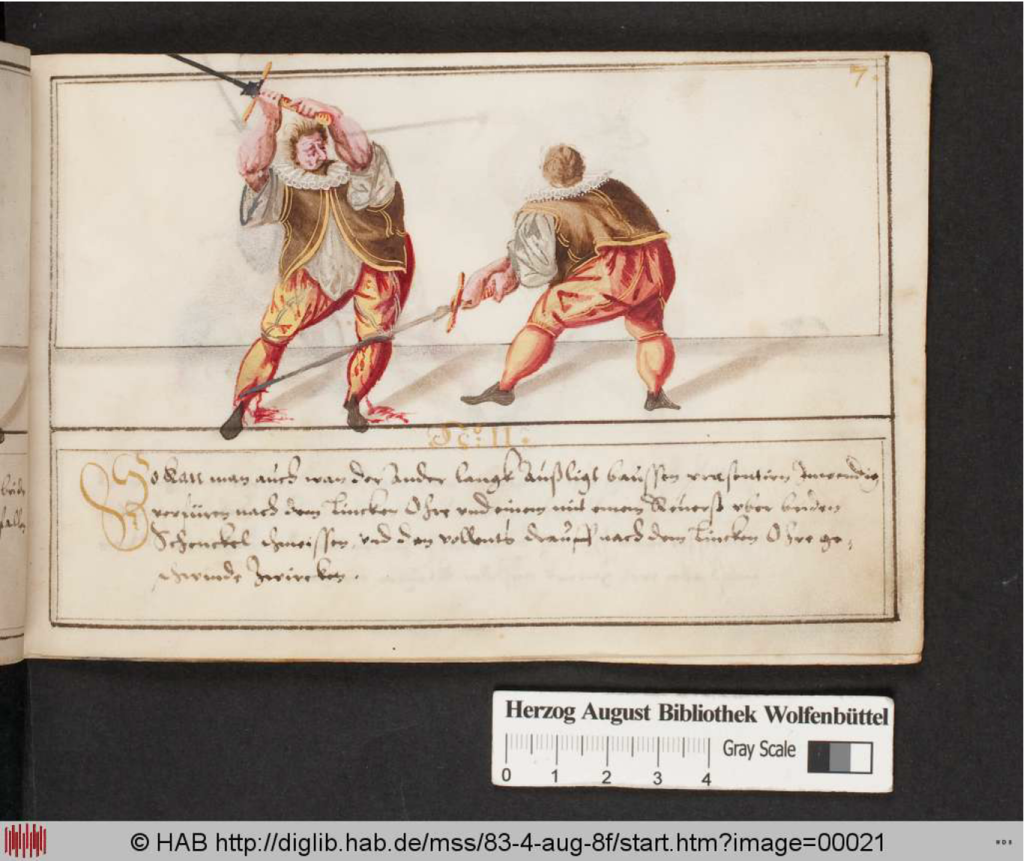 7.
No: 11.
So kan man auch wan der Ander langk Außligt baussen præsentiren Inwendig
verfüren nach dem Lincken Ohre und einem mit einem Reuerß vber beiden
Schenckel schmeissen, vnd den vollents drauff nach dem Lincken Ohre ge,
schwinde Zwircken.
beide
fallen
Herzog August Bibliothek Wolfenbüttel
0 1 2 3 4 Gray Scale
© HAB http://diglib.hab.de/mss/83-4-aug-8f/start.htm?image=00021